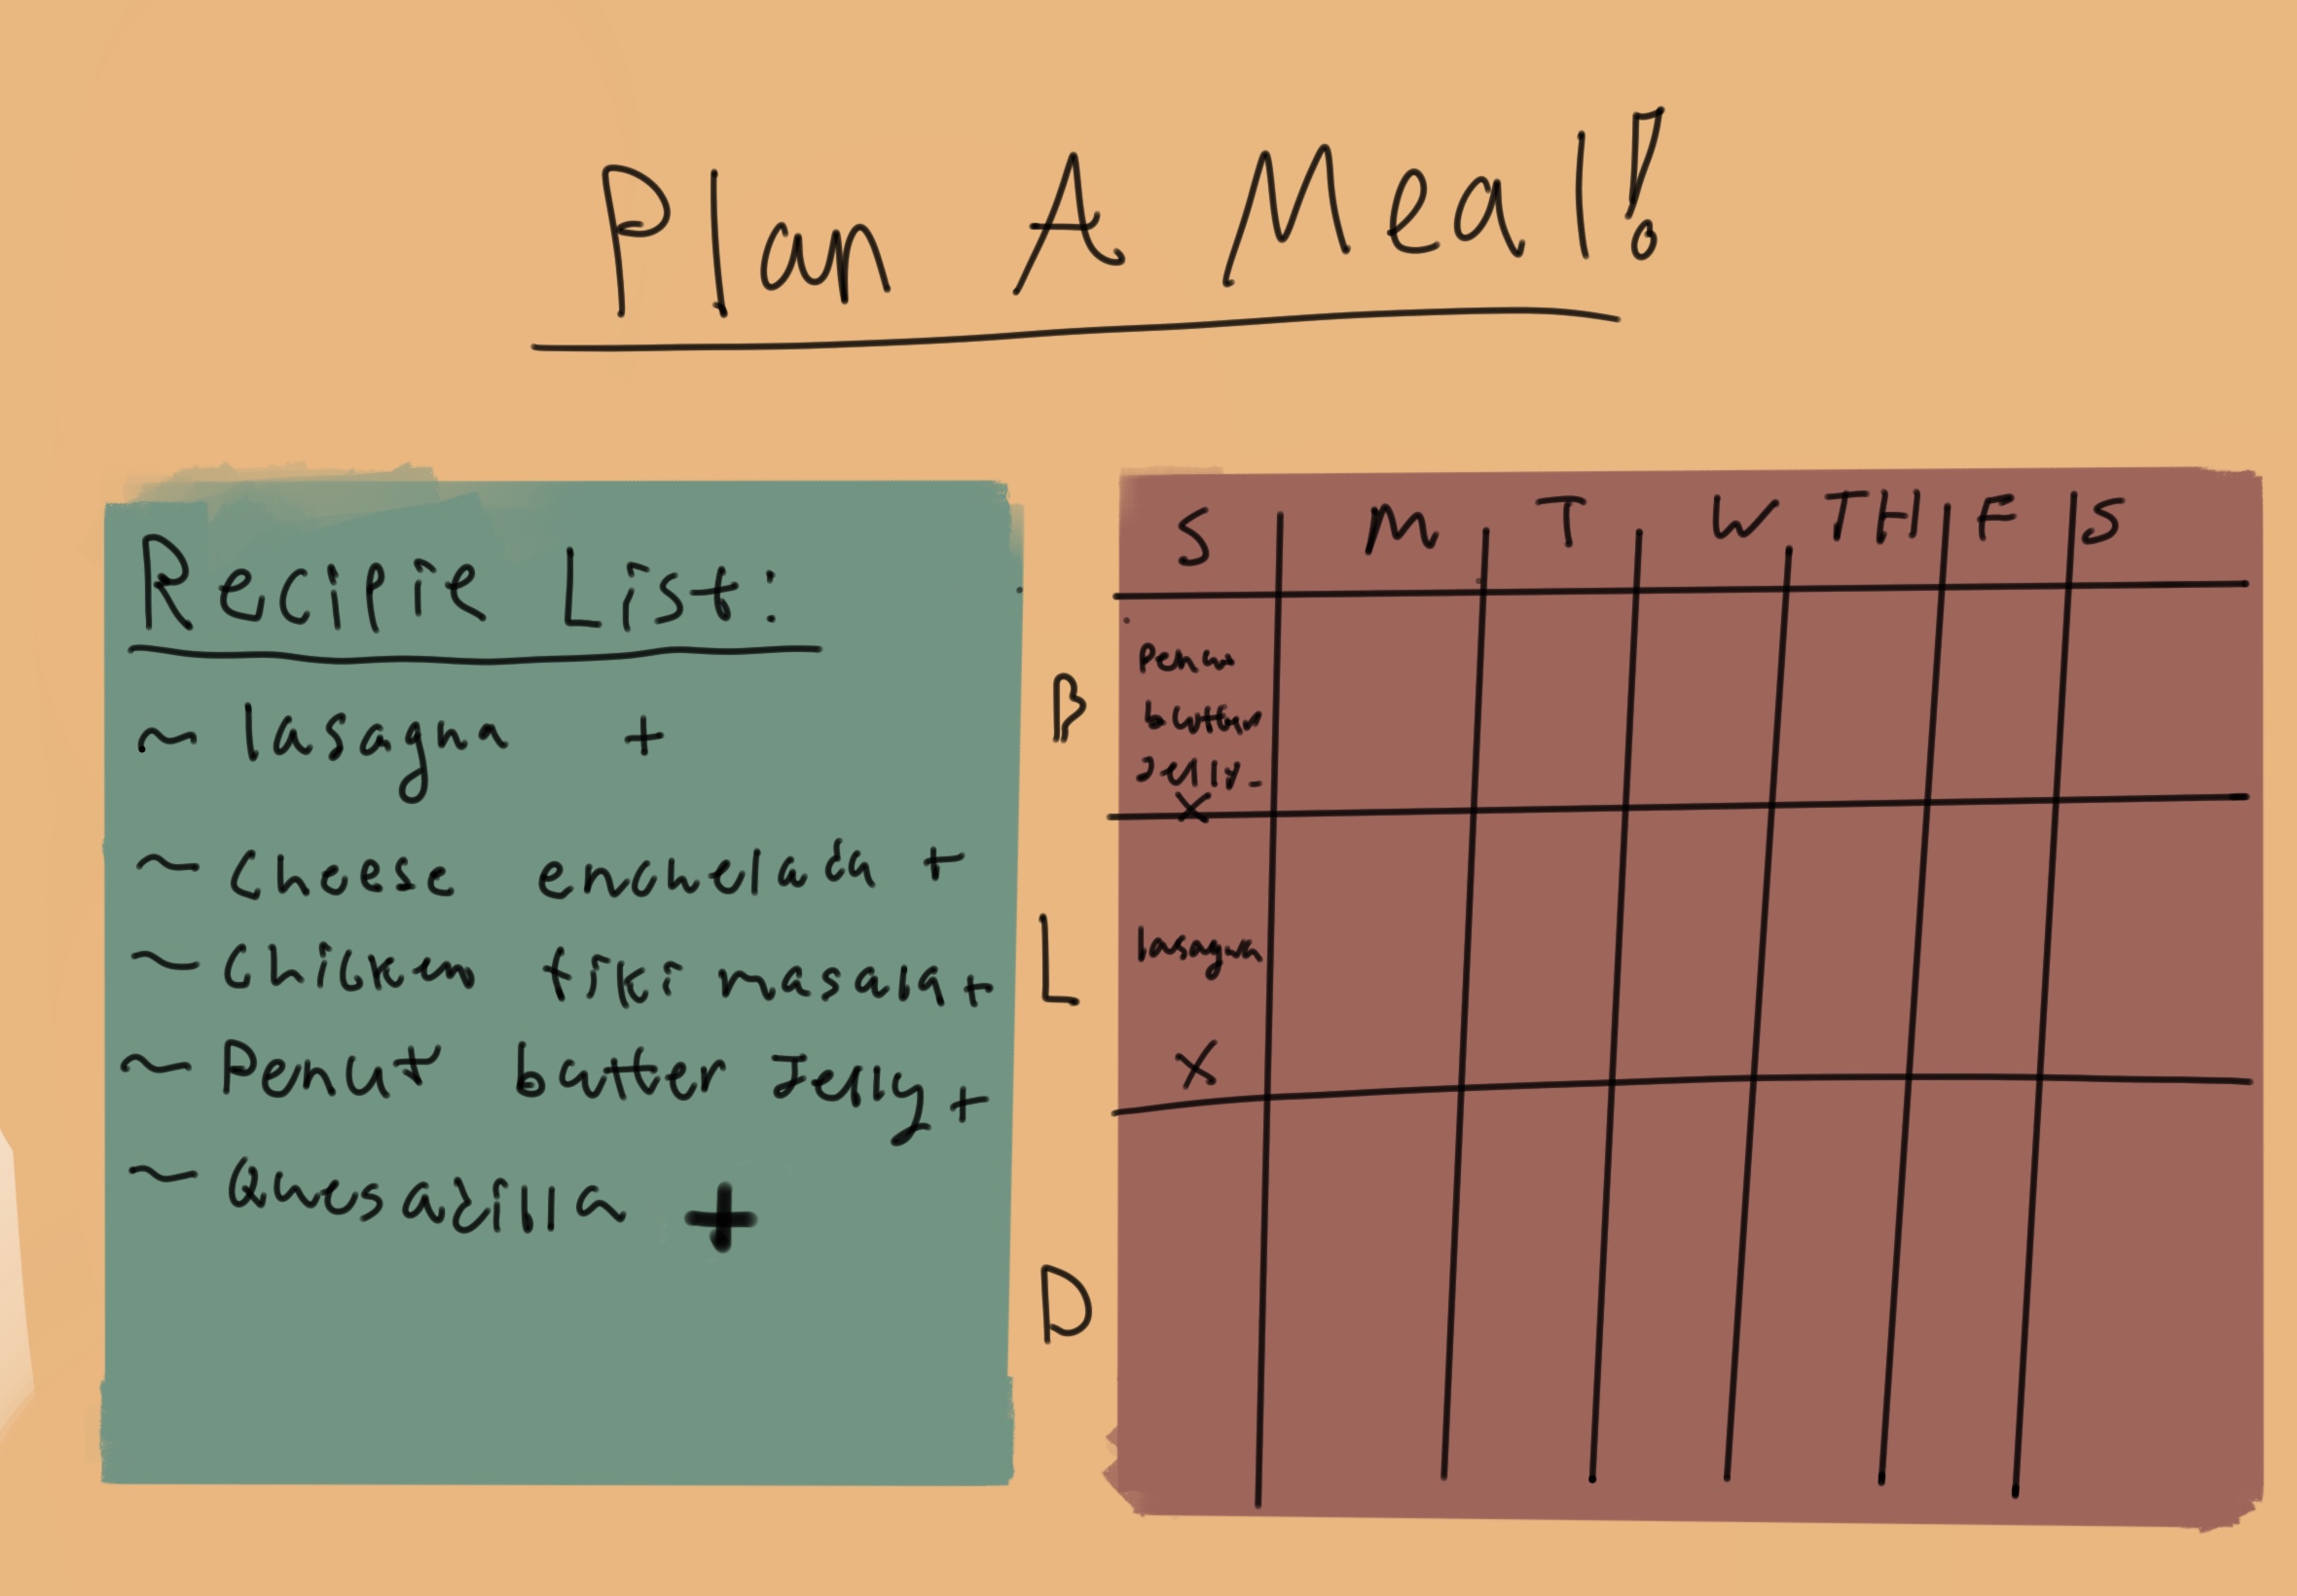 Plan A Meal!
Recipie List:
~ lasagna +
~ Cheese enchelada +
~ Chicken tiki masala +
~ Penut butter Jelly +
~ Quesadilla +
S M T W TH F S
B
butter
Jelly
X
L
lasagna
X
D